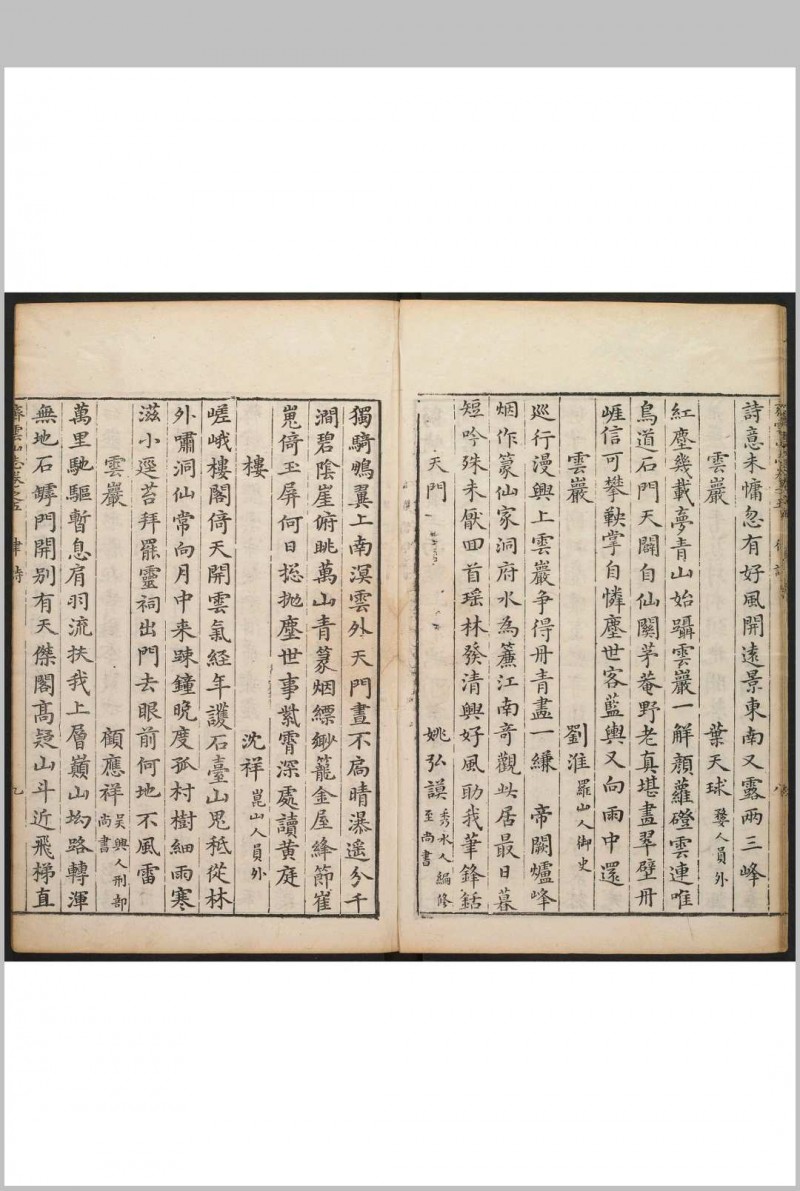 詩意未慵忽有好風開遠景東南又露兩三峰
雲巖 葉天球 婺人員外
紅塵幾載夢青山始躡雲巖一解顏蘿磴雲連唯
鳥道石門天闢自仙關茅菴野老真堪畫翠壁丹
崕信可攀鞅掌自憐塵世客藍輿又向雨中還
雲巖 劉淮 羅山人御史
巡行漫興上雲巖争得丹青畫一縑 帝闕爐峰
烟作篆仙家洞府水為簾江南奇觀此居最日暮
短吟殊未厭回首瑶林發清興好風助我筆鋒銛
天門 姚弘謨 秀水人編修至尚書
獨騎鴨翼上南溟雲外天門晝不扃晴瀑遥分千
澗碧陰崖俯眺萬山青篆烟縹緲籠金屋絳節崔
嵬倚玉屏何日揔抛塵世事紫霄深處讀黄庭
樓 沈祥 崑山人員外
嵯峨樓閣倚天開雲氣經年護石臺山鬼秪從林
外嘯洞仙常向月中来踈鐘晚度孤村樹細雨寒
滋小逕苔拜罷靈祠出門去眼前何地不風雷
雲巖 顧應祥 吴興人刑部尚書
萬里馳驅暫息肩羽流扶我上層巔山坳路轉渾
無地石罅門開别有天傑閣高疑山斗近飛梯直
齊雲山志卷之五 律詩 九